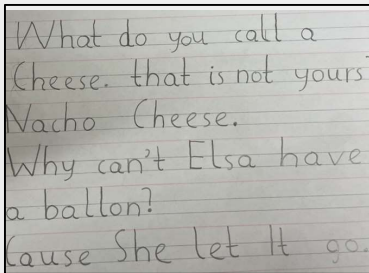 What do you call a
Cheese. that is not yours
Nacho Cheese.
Why can't Elsa have
a ballon?
Cause She let It go.